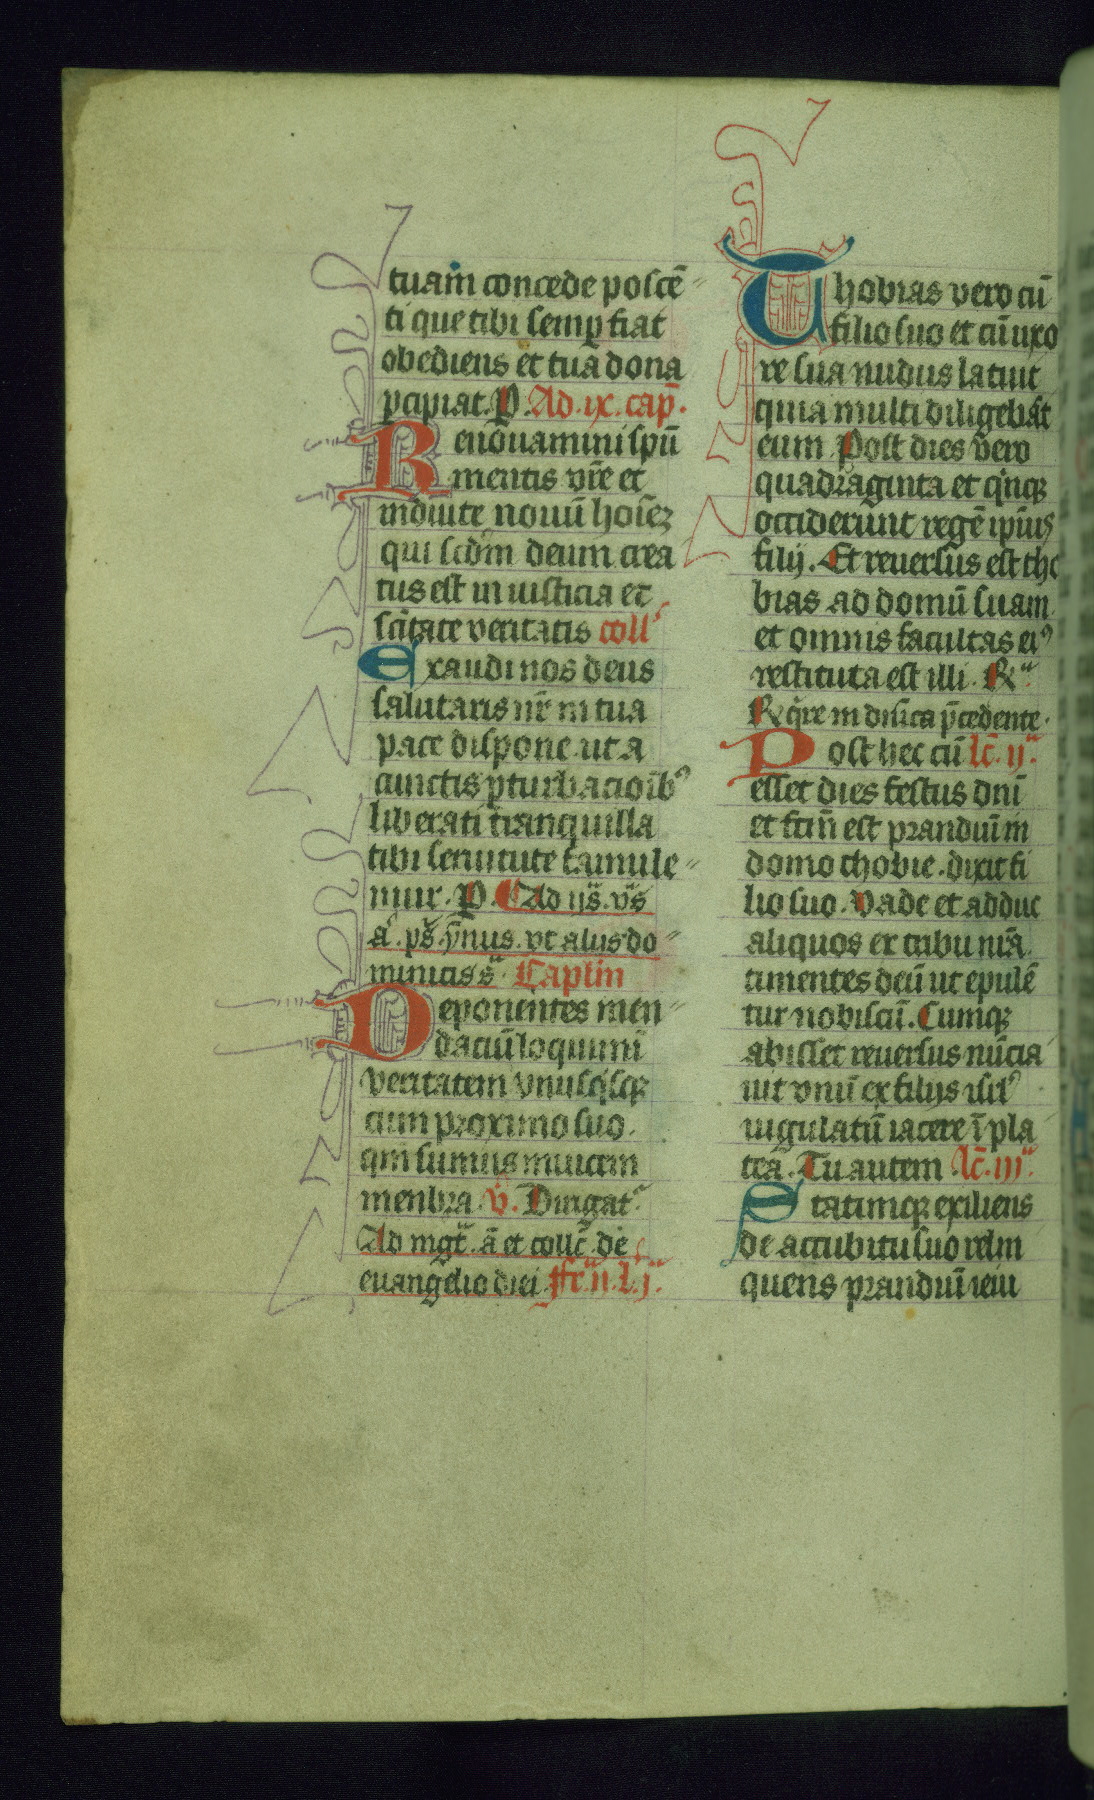 tuam concede poscē
ti que tibi semp fiat
obediens et tua dona
pcipiat. P. Ad .ix. cap̄.
Renouamini spū
mentis vr̄e et
induite nouū hoīez
qui scdm deum crea
tus est in iusticia et
scītate veritatis coll'
Exaudi nos deus
salutaris nr̄ in tua
pace dispone ut a
cunctis pturbacioīb9
liberati tranquilla
tibi seruitute famule
mur. P. Ad ijs. vs̄
a. ps̄. ymnus. vt alijs do
minicis s. Capl̄m
Deponentes men
daciū loquimī
veritatem vnusq̄sq3
cum proximo suo.
qm̄ sumus inuicem
menbra. v̄. Dirigat᷑
Ad mgt̄. ā et collc̄. de
euangelio diei ffr̄ .ii. l. j.
Thobias vero cū
filio suo et cū uxo
re sua nudus latuit
quia multi diligebāt
eum Post dies vero
quadraginta et qinq3
occiderunt regē ipīus
filij. Et reuersus est tho
bias ad domū suam
et omnis facultas ei9
restituta est illi. R̄
R̄ qr̄e in dn̄ica p̄cedente.
Post hec cū lc̄. ij.
esset dies festus dnī
et fcm̄ est prandiū in
domo thobie. dixit fi
lio suo. Vade et adduc
aliquos ex tribu nrā
timentes deū ut epulē
tur nobiscū. Cumq3
abisset reuersus nūcia
uit vnū ex filijs isrl'
iugulatū iacere ī pla
tea. Tu autem lc̄. iij.
Statimq3 exiliens
de accubitu suo relin
quens prandiū ieiu